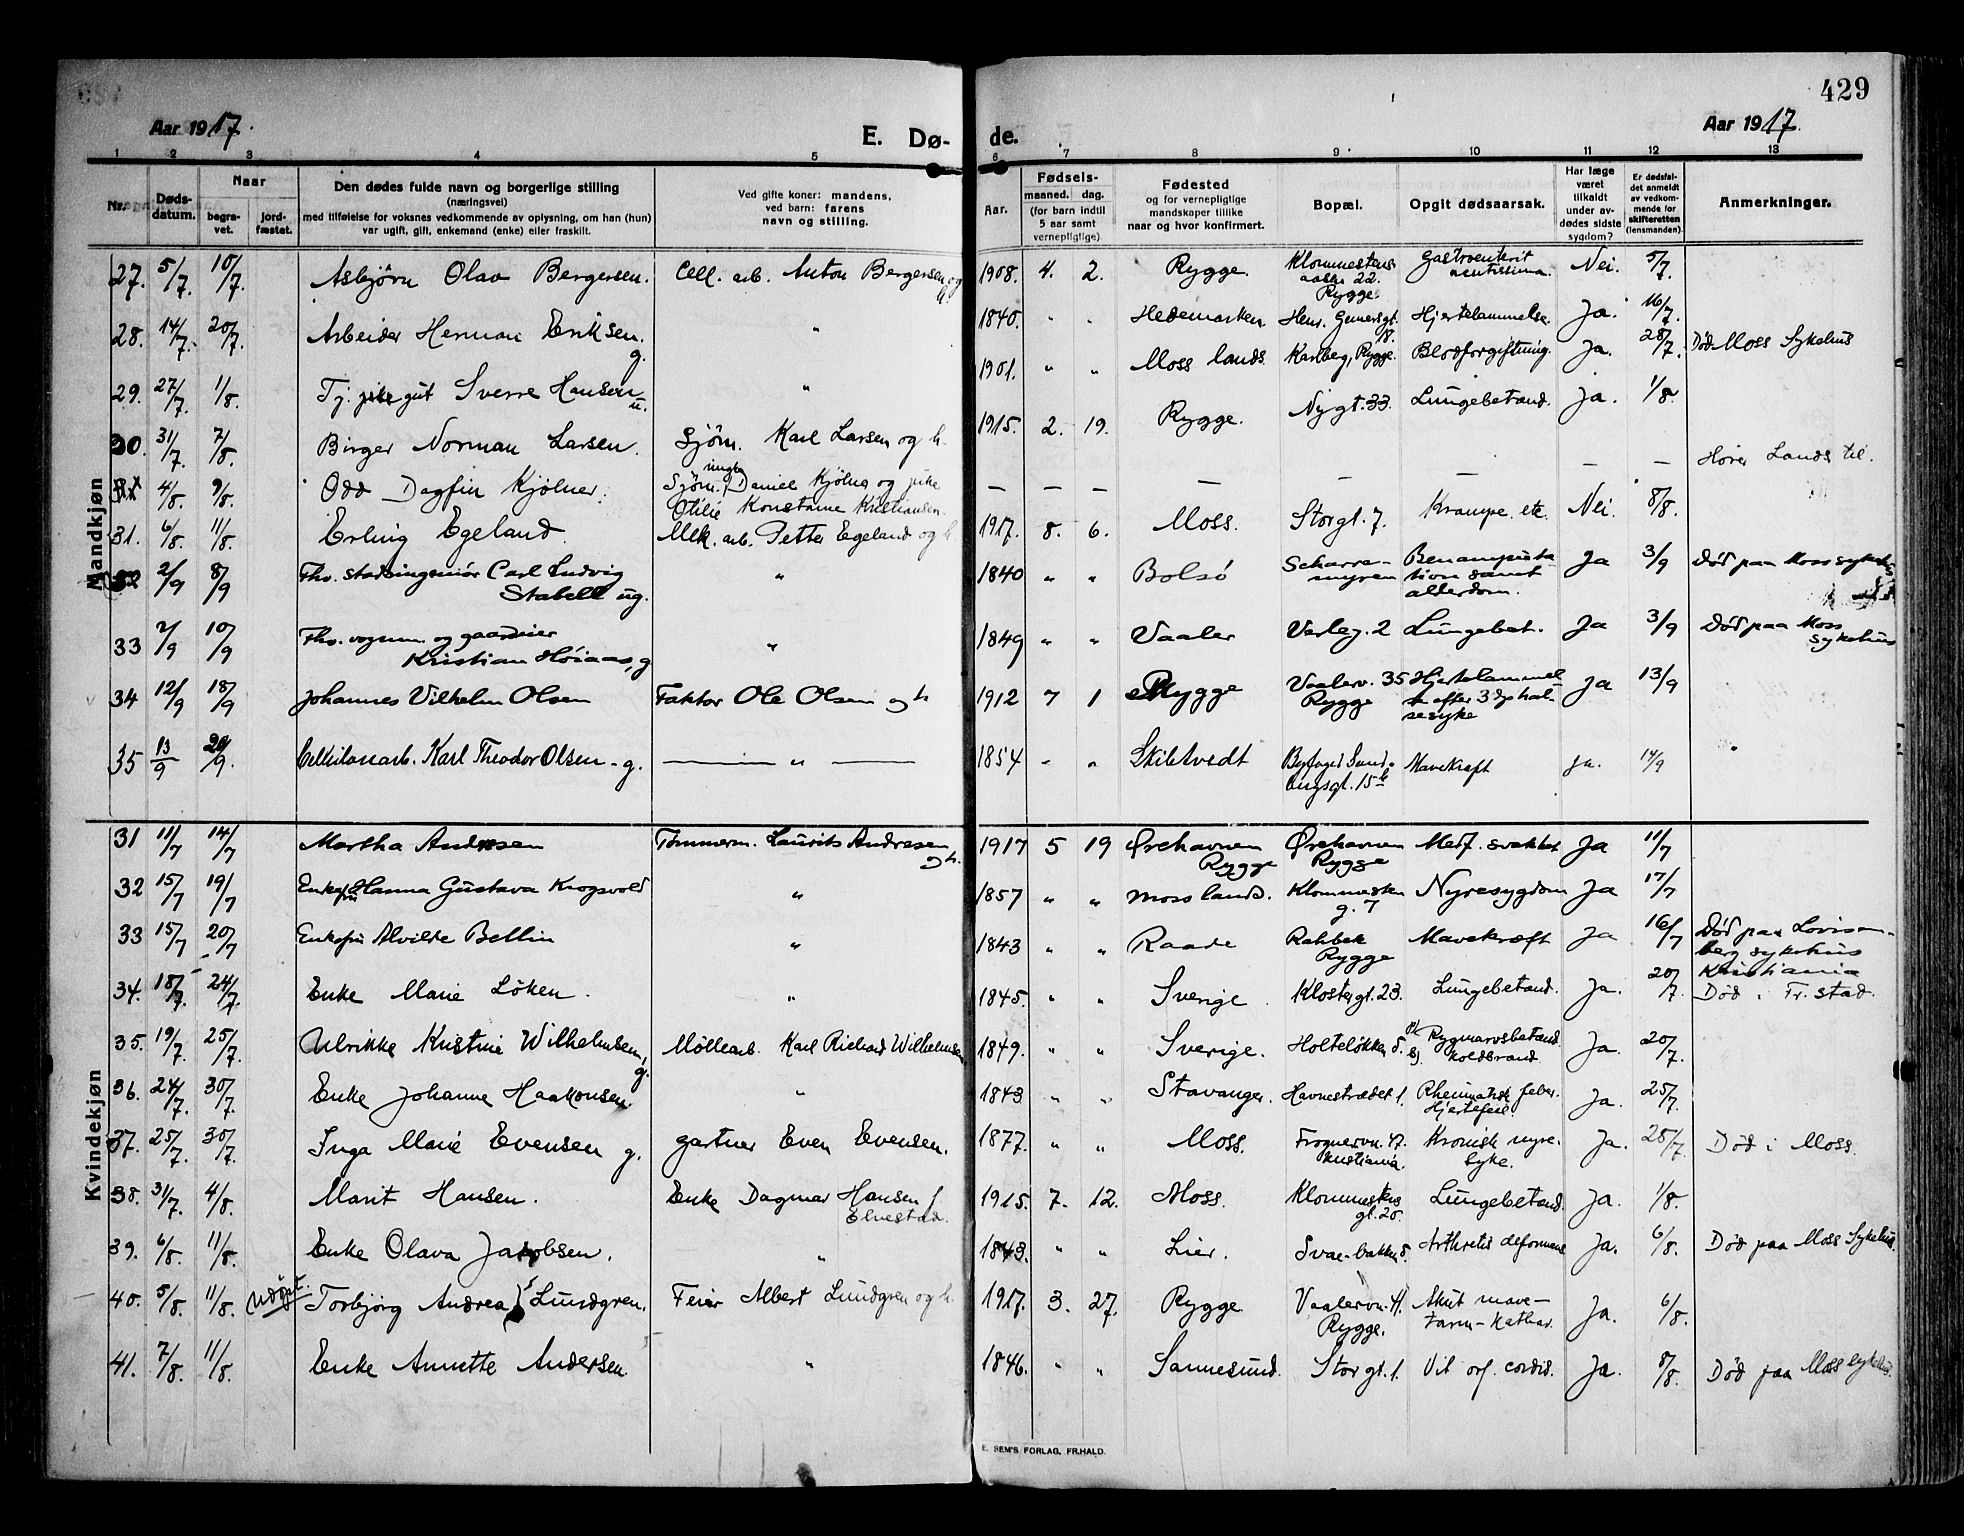 429
Aar 1917.
E. Dø-
de.
Aar 1917.
1 2 3 4 5 6 7 8 9 10 11 12 13
Nr.
Døds-
datum.
Naar
begra-
vet.
jord-
fæstet.
Den dødes fulde navn og borgerlige stilling
(næringsvei)
med tilføielse for voksnes vedkommende av oplysning, om han (hun)
var ugift, gift, enkemand (enke) eller fraskilt.
Ved gifte koner: mandens,
ved barn: farens
navn og stilling.
Aar.
Fødsels-
maaned. dag.
(for barn indtil
5 aar samt
vernepligtige)
Fødested
og for vernepligtige
mandskaper tillike
naar og hvor konfirmert.
Bopæl.
Opgit dødsaarsak.
Har læge
været
tilkaldt
under av-
dødes sidste
sygdom?
Er dødsfal-
det anmeldt
av vedkom-
mende for
skifteretten
(lensmanden)
Anmerkninger.
Mandkjøn
27. 5/7. 10/7. Asbjörn Olav Bergersen. Cell. arb. Anton Bergersen og h. 1908. 4. 2. Rygge. Klommestens- 22. Rygge. Gastroenterit Nei. 5/7.
28. 14/7. 20/7. Arbeider Herman Eriksen. g. " 1840. " " Hedemarken Henr. Gerners gt. Hjertelammelse. Ja. 16/7.
29. 27/7. 1/8. Tj. gut Sverre Hansen u. " 1901. " " Moss lands. Karlberg, Rygge. Blodforgiftning. Ja. 28/7. Død Moss Sykehus
30. 31/7. 7/8. Birger Norman Larsen. Sjöm. Karl Larsen og h. 1915. 2. 19. Rygge. Nygt. 33. Lungebetænd. Ja. 1/8.
4/8. 9/8. Odd Dagfin Kjölner. Sjöm. ungk. Daniel Kjölner og pike Otilie Konstanse Kristiansen. — — — — — — — — Hörer Lands til.
31. 6/8. 11/8. Erling Egeland. Mek. arb. Petter Egeland og h. 1917. 8. 6. Moss. Storgt. 7. Krampe etc. Nei. 8/8.
32 2/9 8/9 Fhv. stadsingeniör Carl Ludvig Stabell ug. " 1840 " " Bolsö Scharre- myren Benamputa tion samt alderdom. Ja 3/9 Död paa Moss sykehus
33 2/9 10/9 Fhv. vognm. og gaardeier Kristian Höiaas, g " 1849 " " Vaaler Varlog. 2 Lungebet. Ja 3/9 Död paa Moss sykehus
34 12/9 18/9 Johannes Vilhelm Olsen Faktor Ole Olsen og h 1912 7 1 Rygge Vaalerv. 35 Rygge Hjertelammel se efter 3 dg hal- sesyke Ja 13/9
35 13/9 20/9. Cellulosearb. Karl Theodor Olsen - g. — " — 1854 - " Skibtvedt Byfoged Sand- bergsgt. 15b Mavekræft ja. 14/9 "
Kvindekjøn
31 11/7 14/7 Martha Andresen Tömmerm. Laurits Andresen og h. 1917 5 19 Örehavnen Rygge Örehavnen Rygge Medf. svakhet Ja 11/7
32 15/7 19/7 Enkefru Hanna Gustava Krogsvold " 1857 " " Moss lands. Klommesten g. 7 Nyresygdom Ja 17/7
33 15/7 20/7 Enkefru Alvilde Bellin " 1843 " " Raade Rahbek Rygge Mavekræft Ja 16/7 Död paa Lovisen- berg sykehus Kristiania
34. 18/7. 24/7. Enke Marie Löken. " 1845. " " Sverige. Klostergt. 23. Lungebetænd. Ja. 20/7. Död i Fr.stad.
35. 19/7. 25/7. Ulrikke Kristine Wilhelmsen, g. Möllearb. Karl Richard Wilhelmsen 1849. " " Sverige. Holtelökken 5. Rygmarvsbetænd. koldbrand Ja. 20/7.
36. 24/7. 30/7. Enke Johanne Haakonsen. " 1843. " " Stavanger. Havnestrædet 1. Rheumatisk feber. Hjertefeil. Ja. 25/7.
37. 25/7. 30/7. Inga Marie Evensen g. gartner Even Evensen. 1877. " " Moss. Frognervn. 47. Kristiania. Kronisk nyre- syke. Ja. 28/7. Död i Moss.
38. 31/7. 4/8. Marit Hansen. Enke Dagmar Hansen f. Elvestad. 1915. 7. 12. Moss. Klommestens gt. 20. Lungebetænd. Ja. 1/8.
39. 6/8. 11/8. Enke Olava Jacobsen. " 1843. " " Lier. Svae-bakken 5. Arthritis deformans Ja. 6/8. Död paa Moss Sykehus.
40. 5/8. 11/8. udöpt. Torbjörg Andrea Lundgren. Feier Albert Lundgren og h. 1917. 3. 27. Rygge. Vaalervn. 41. Rygge. Akut mave- tarm-kathar. Ja. 6/8.
41. 7/8. 11/8. Enke Annette Andersen. " 1846. " " Sannesund. Storgt. 1. Vit. org. cordis. Ja. 8/8. Död paa Moss sykehus.
E. SEM'S FORLAG, FR.HALD.